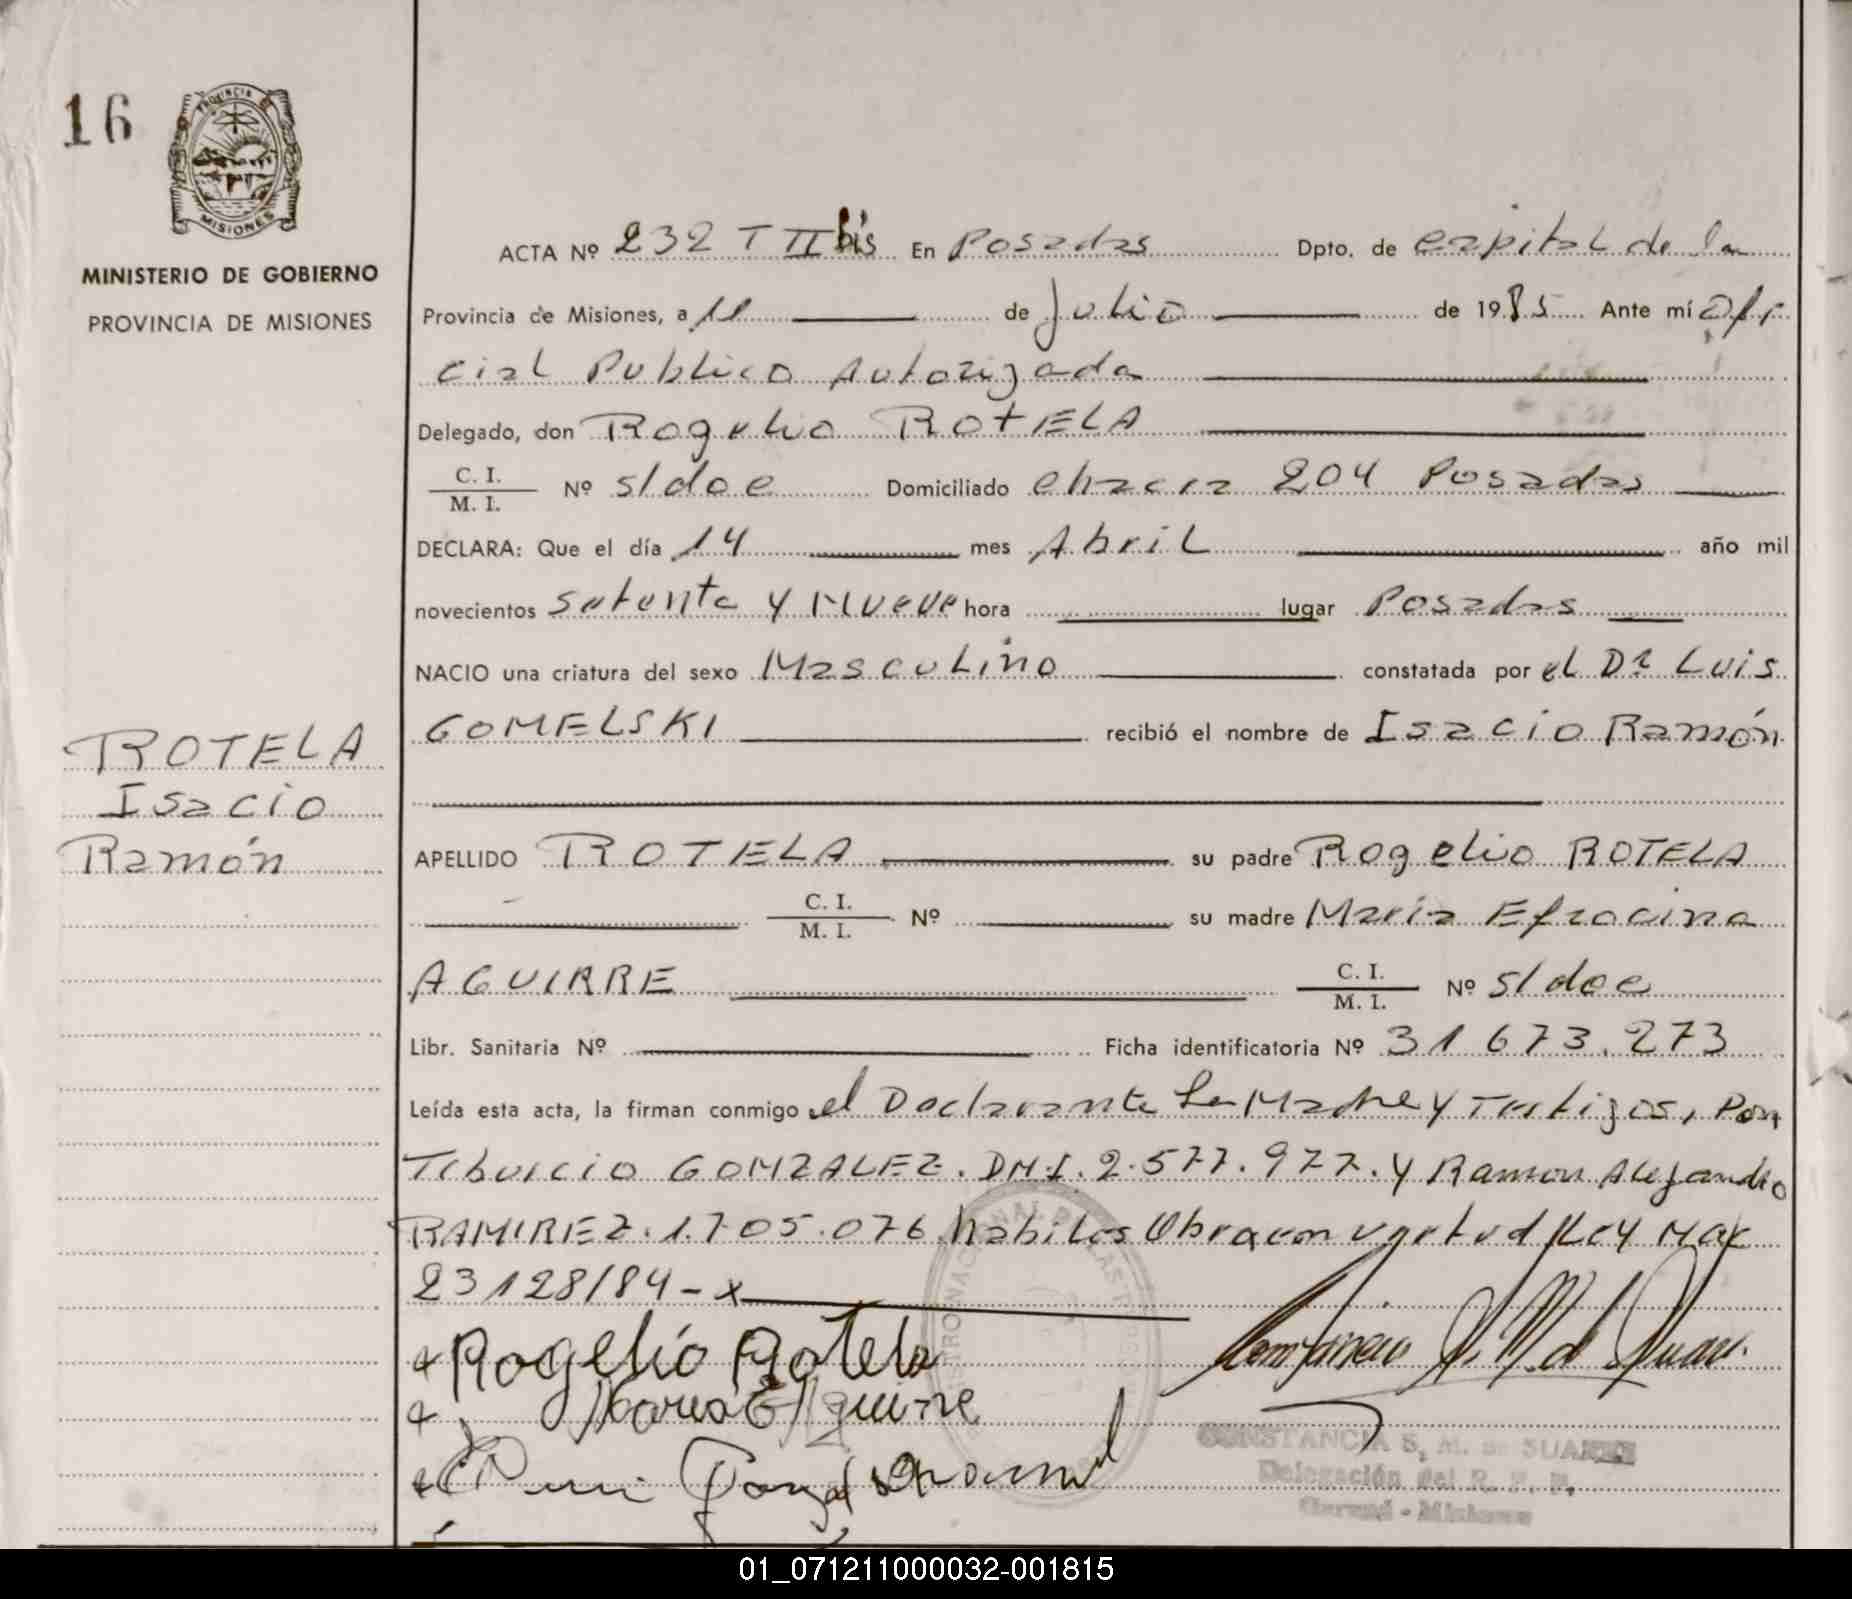 16
PROVINCIA DE
MISIONES
MINISTERIO DE GOBIERNO
PROVINCIA DE MISIONES
ROTELA
Isacio
Ramón
ACTA Nº 232 T II bis En Posadas Dpto. de capital de la
Provincia de Misiones, a 11 de Julio de 1985 Ante mí Ofi
cial Publico Autorizada
Delegado, don Rogelio ROTELA
C. I.
M. I. Nº s/doc Domiciliado chacra 204 Posadas
DECLARA: Que el día 14 mes Abril año mil
novecientos setenta y Nueve hora lugar Posadas
NACIO una criatura del sexo Masculino constatada por el Dr Luis
GOMELSKI recibió el nombre de Isacio Ramón
APELLIDO ROTELA su padre Rogelio ROTELA
C. I.
M. I. Nº su madre María Efrocina
AGUIRRE C. I.
M. I. Nº s/doc
Libr. Sanitaria Nº Ficha identificatoria Nº 31 673.273
Leída esta acta, la firman conmigo el Declarante La Madre y Testigos, Don
Tiburcio GONZALEZ. DNI. 2.577.977. y Ramon Alejandro
RAMIREZ. 1.705.076 habiles Obra en Ley Nac
23128/84 - x
x Rogelio Rotela
x Maria E Aguirre
CONSTANCIA S. M. de SUAREZ
Delegación del R. P. P.
Garupá - Misiones
01_071211000032-001815